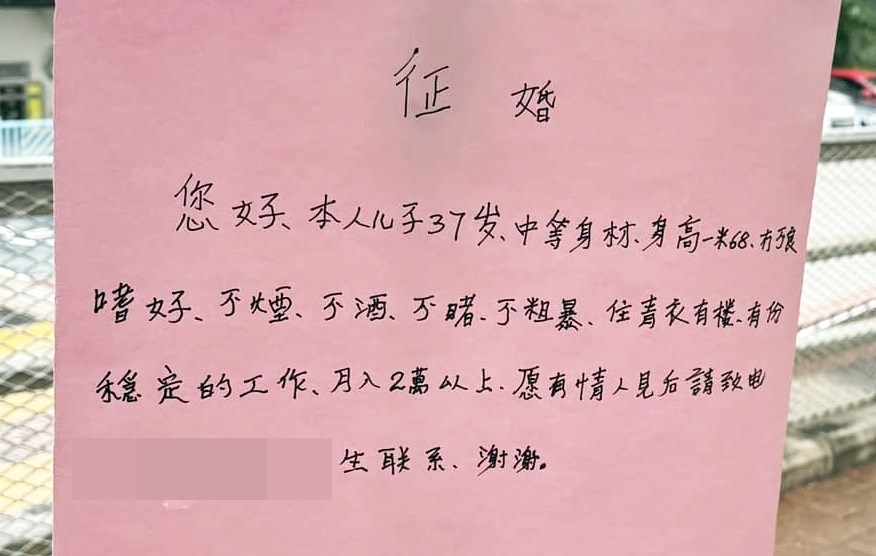 征婚
您好、本人儿子37岁、中等身材、身高一米68、冇不良
嗜好、不煙、不酒、不賭、不粗暴、住青衣有楼、有份
穩定的工作、月入2萬以上、愿有情人見后請致电
生联系、谢谢。